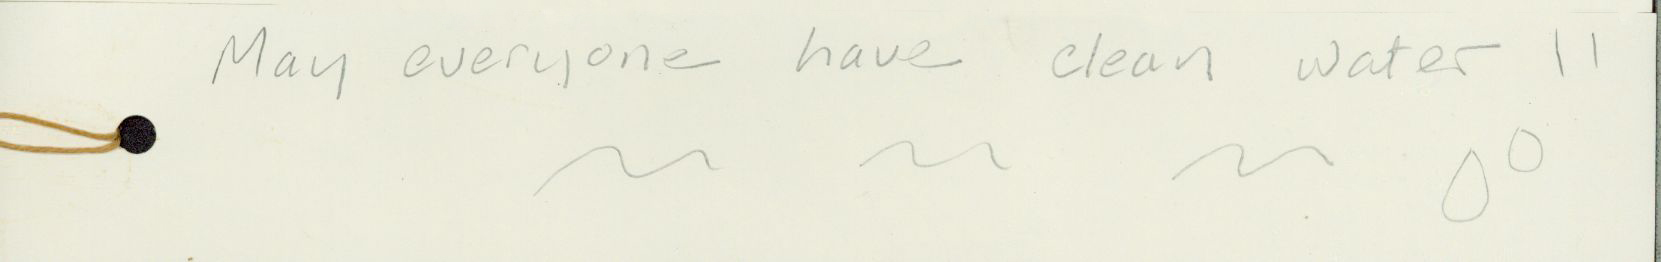 May everyone have clean water !!